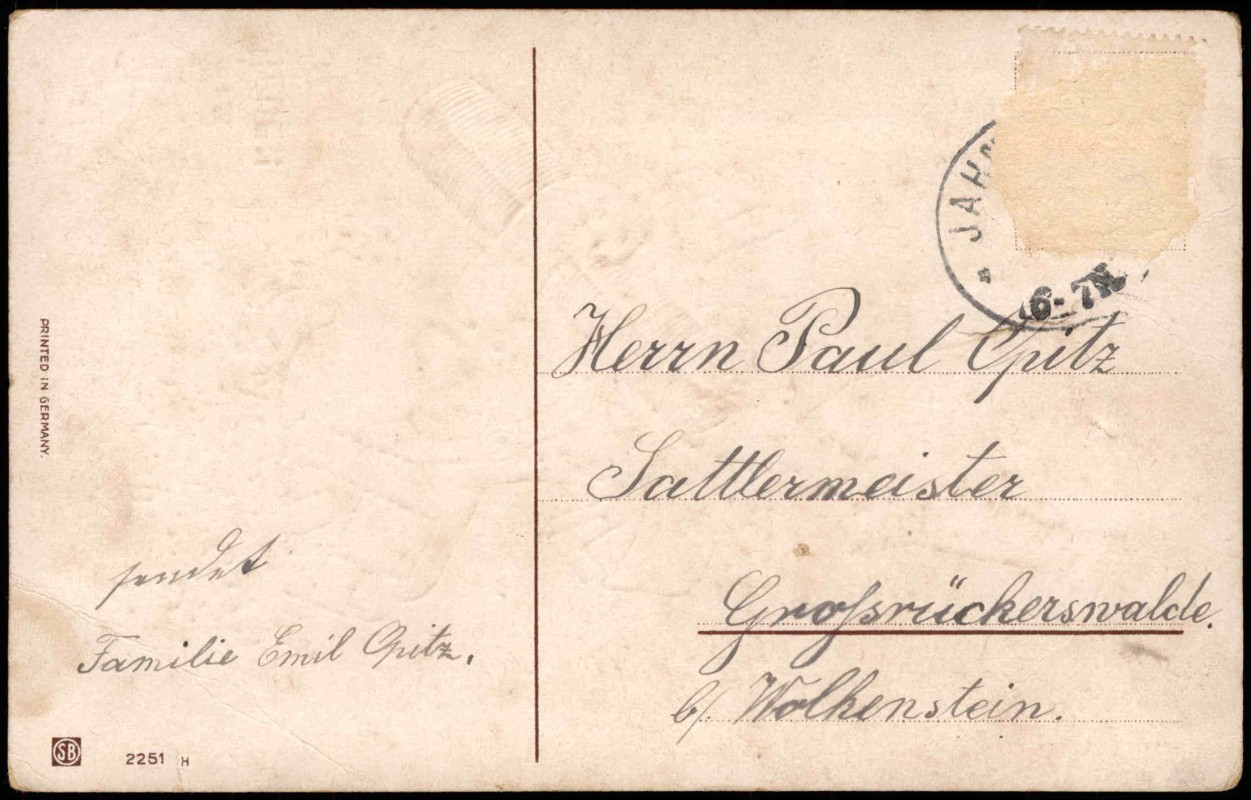 PRINTED IN GERMANY.
sendet
Familie Emil Opitz.
SB
2251 H
JAH
6-7N
Herrn Paul Opitz
Sattlermeister
Großrückerswalde.
b/. Wolkenstein.